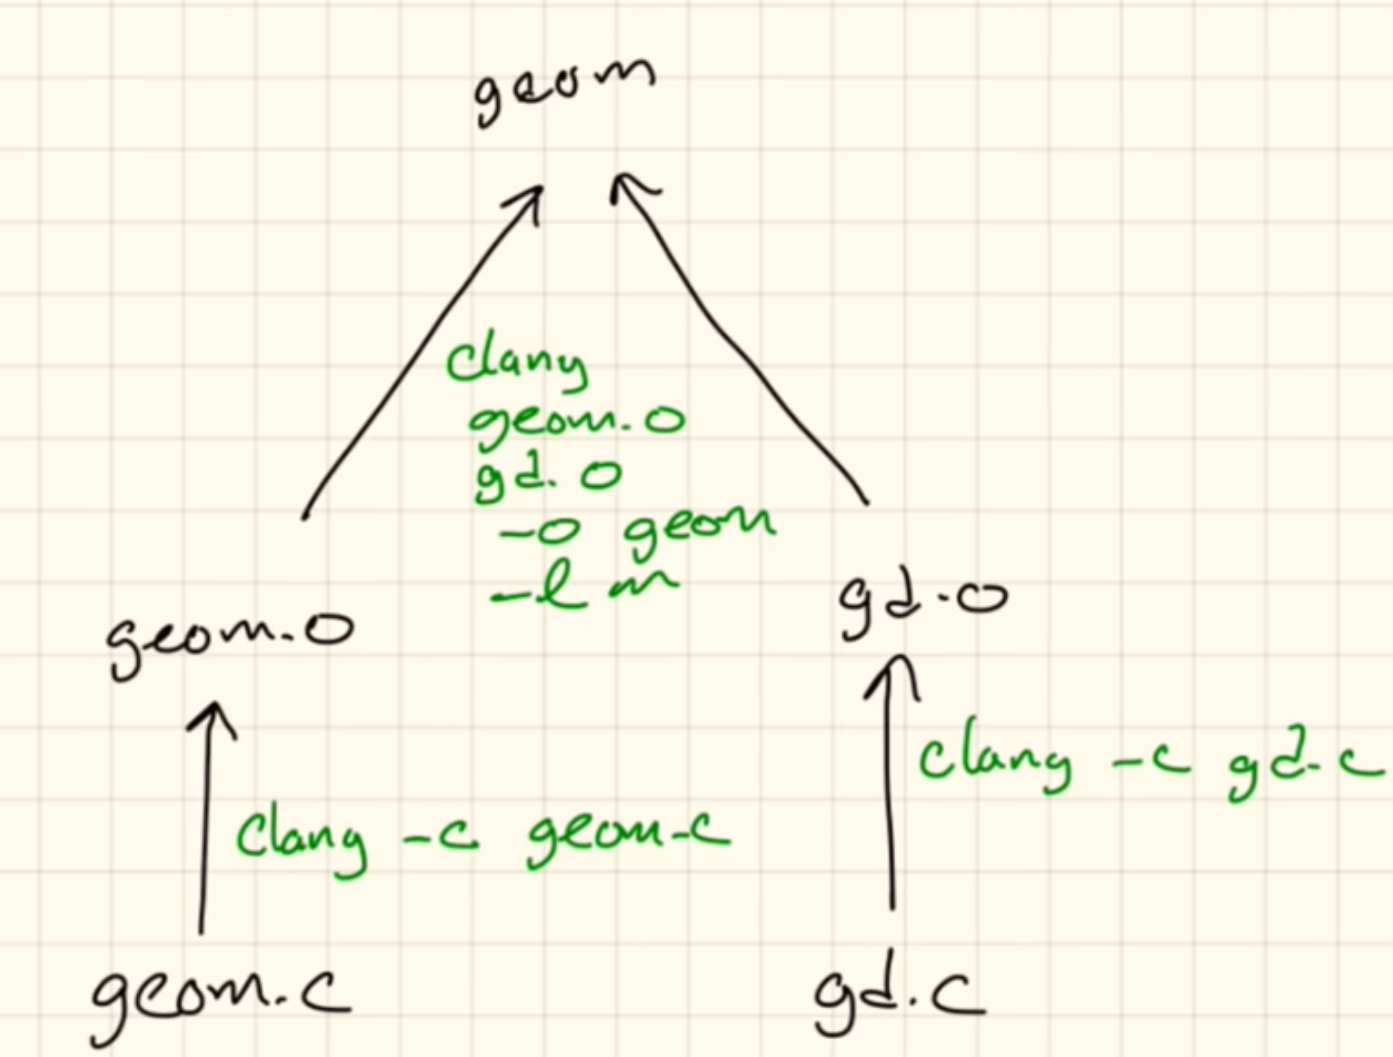 geom
clang
geom.o
gd.o
-o geom
-lm
geom.o
gd.o
clang -c gd.c
clang -c geom.c
geom.c
gd.c